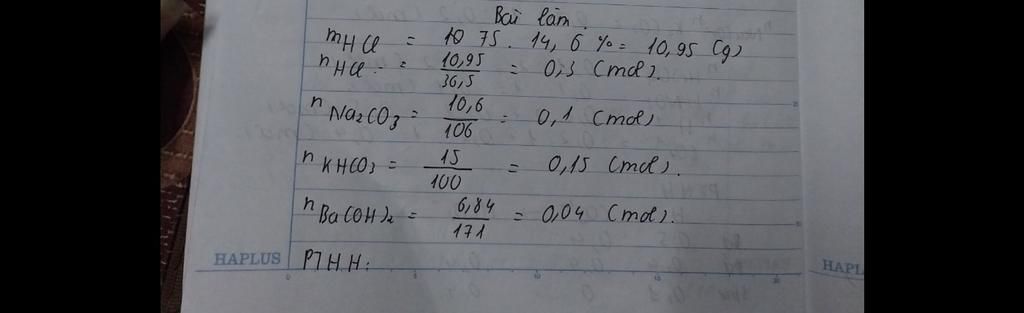 Bài làm.
mHCl = 10 75. 14, 6 % = 10,95 (g)
nHCl = 10,95/36,5 = 0,3 (mol).
nNa2CO3 = 10,6/106 = 0,1 (mol)
nKHCO3 = 15/100 = 0,15 (mol).
nBa(OH)2 = 6,84/171 = 0,04 (mol).
PTHH:
HAPLUS
HAPL